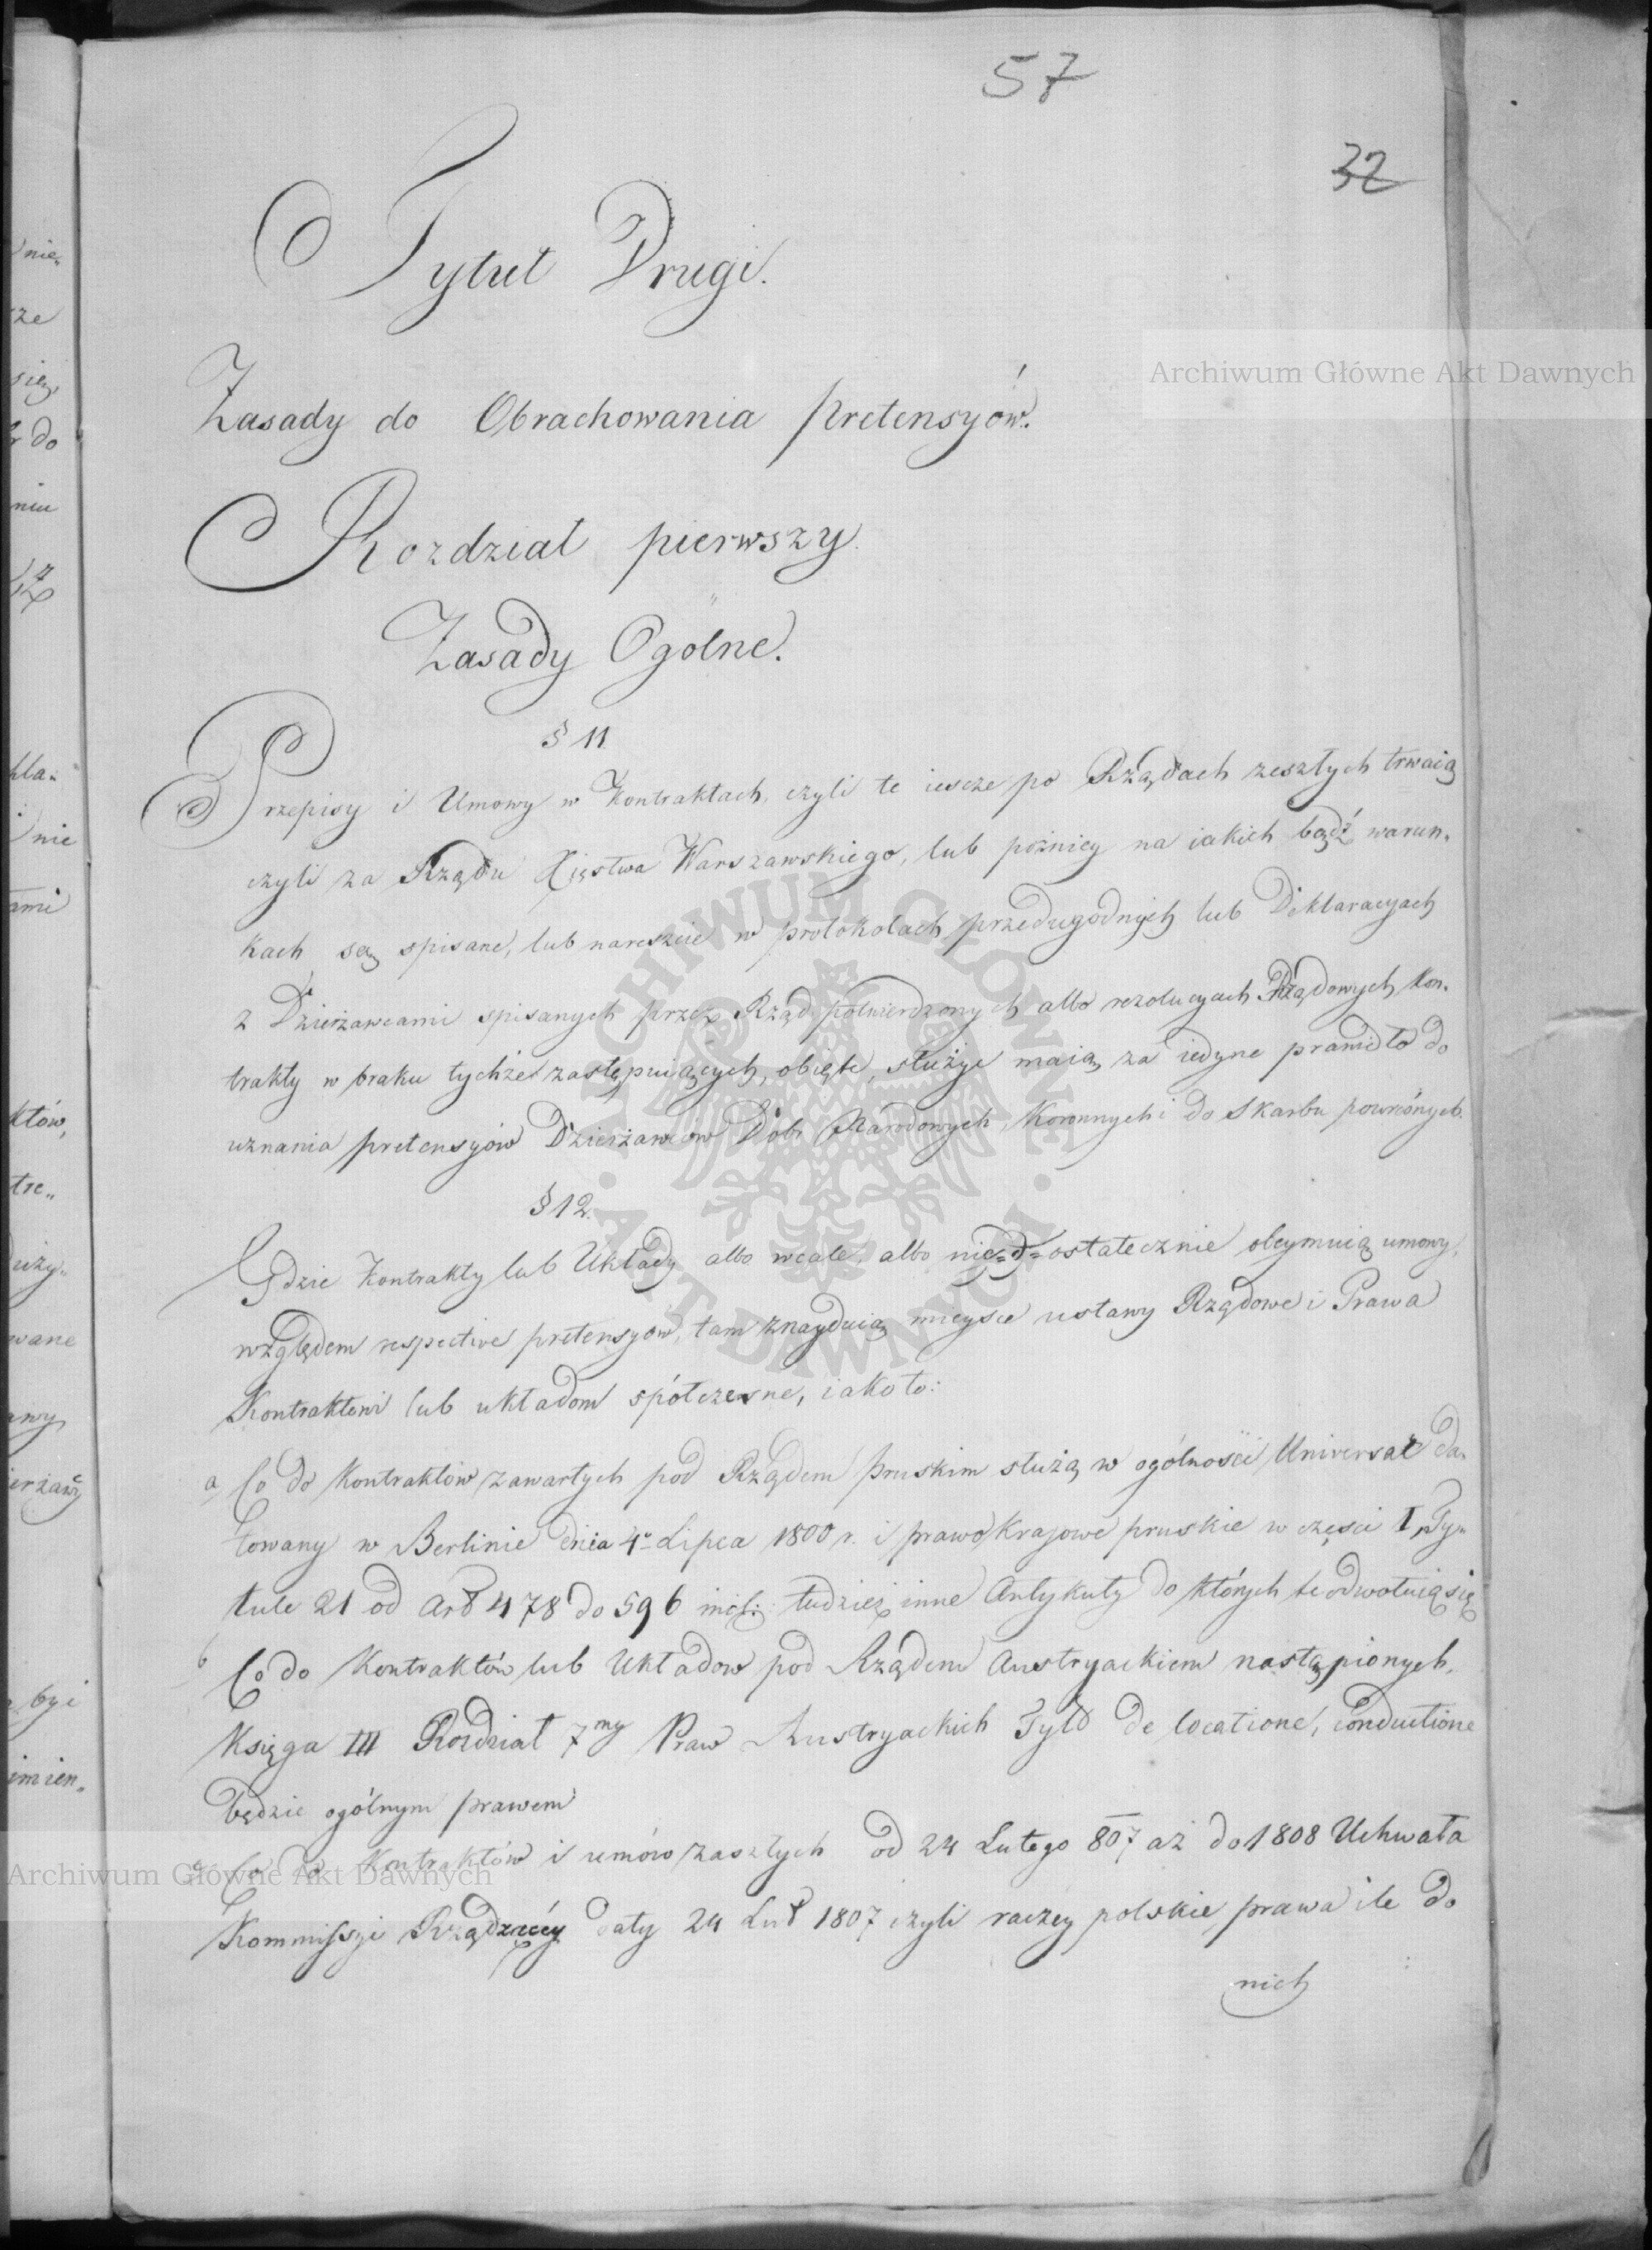 57
32
Tytuł Drugi.
Zasady do Obrachowania pretensyów.
Rozdział pierwszy.
Zasady Ogólne.
§ 11.
Przepisy i Umowy w Kontraktach, czyli te iescze po Rządach zeszłych trwaią
czyli za Rządu Xięstwa Warszawskiego, lub poźniey na iakich bądź warun„
kach są spisane, lub nareszcie w protokołach przedugodnych lub Deklaracyach
z Dzierżawcami spisanych przez Rząd potwierdzonych albo rezolucyach Rządowych kon„
trakty w braku tychże zastępuiących, obięte, służyć maią za iedyne prawidło do
uznania pretensyów Dzierżawców Dóbr Narodowych, Koronnych i do Skarbu powróconych.
§ 12.
Gdzie Kontrakty lub Układy albo wcale, albo nie=d=ostatecznie obeymuią umowy,
względem respective pretensyow, tam znayduią mieysce ustawy Rządowe i Prawa
Kontraktom lub układom spółczesne, iako to:
a Co do Kontraktów zawartych pod Rządem pruskim służą w ogólności Universał da„
towany w Berlinie dnia 4° Lipca 1800 r. i prawo Krajowe pruskie w części I, Ty„
tule 21 od Art 478 do 596 incl: tudzież inne Artykuły do których te odwołuią się
b Co do Kontraktów lub Układow pod Rządem Austryackiem nastąpionych,
Księga III Rozdział 7my Praw Austryackich Tyt de locatione, conductione
będzie ogólnym prawem
c Co do Kontraktów i umów zaszłych od 24 Lutego 807 aż do 1808 Uchwała
Kommissyi Rządzącéy daty 24 Lut 1807 czyli raczey polskie prawa ile do
nich
Archiwum Główne Akt Dawnych
Archiwum Główne Akt Dawnych
ARCHIWUM GŁÓWNE AKT DAWNYCH